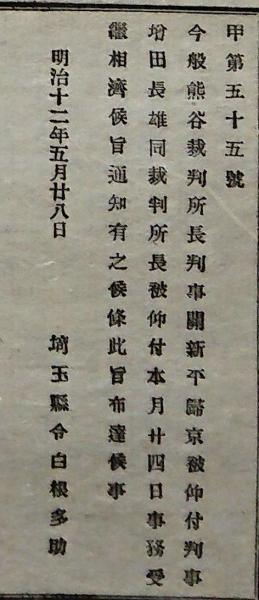 甲第五十五號
今般熊谷裁判所長判事關新平歸京被仰付判事
增田長雄同裁判所長被仰付本月廿四日事務受
繼相濟候旨通知有之候條此旨布達候事
明治十二年五月廿八日
埼玉縣令白根多助